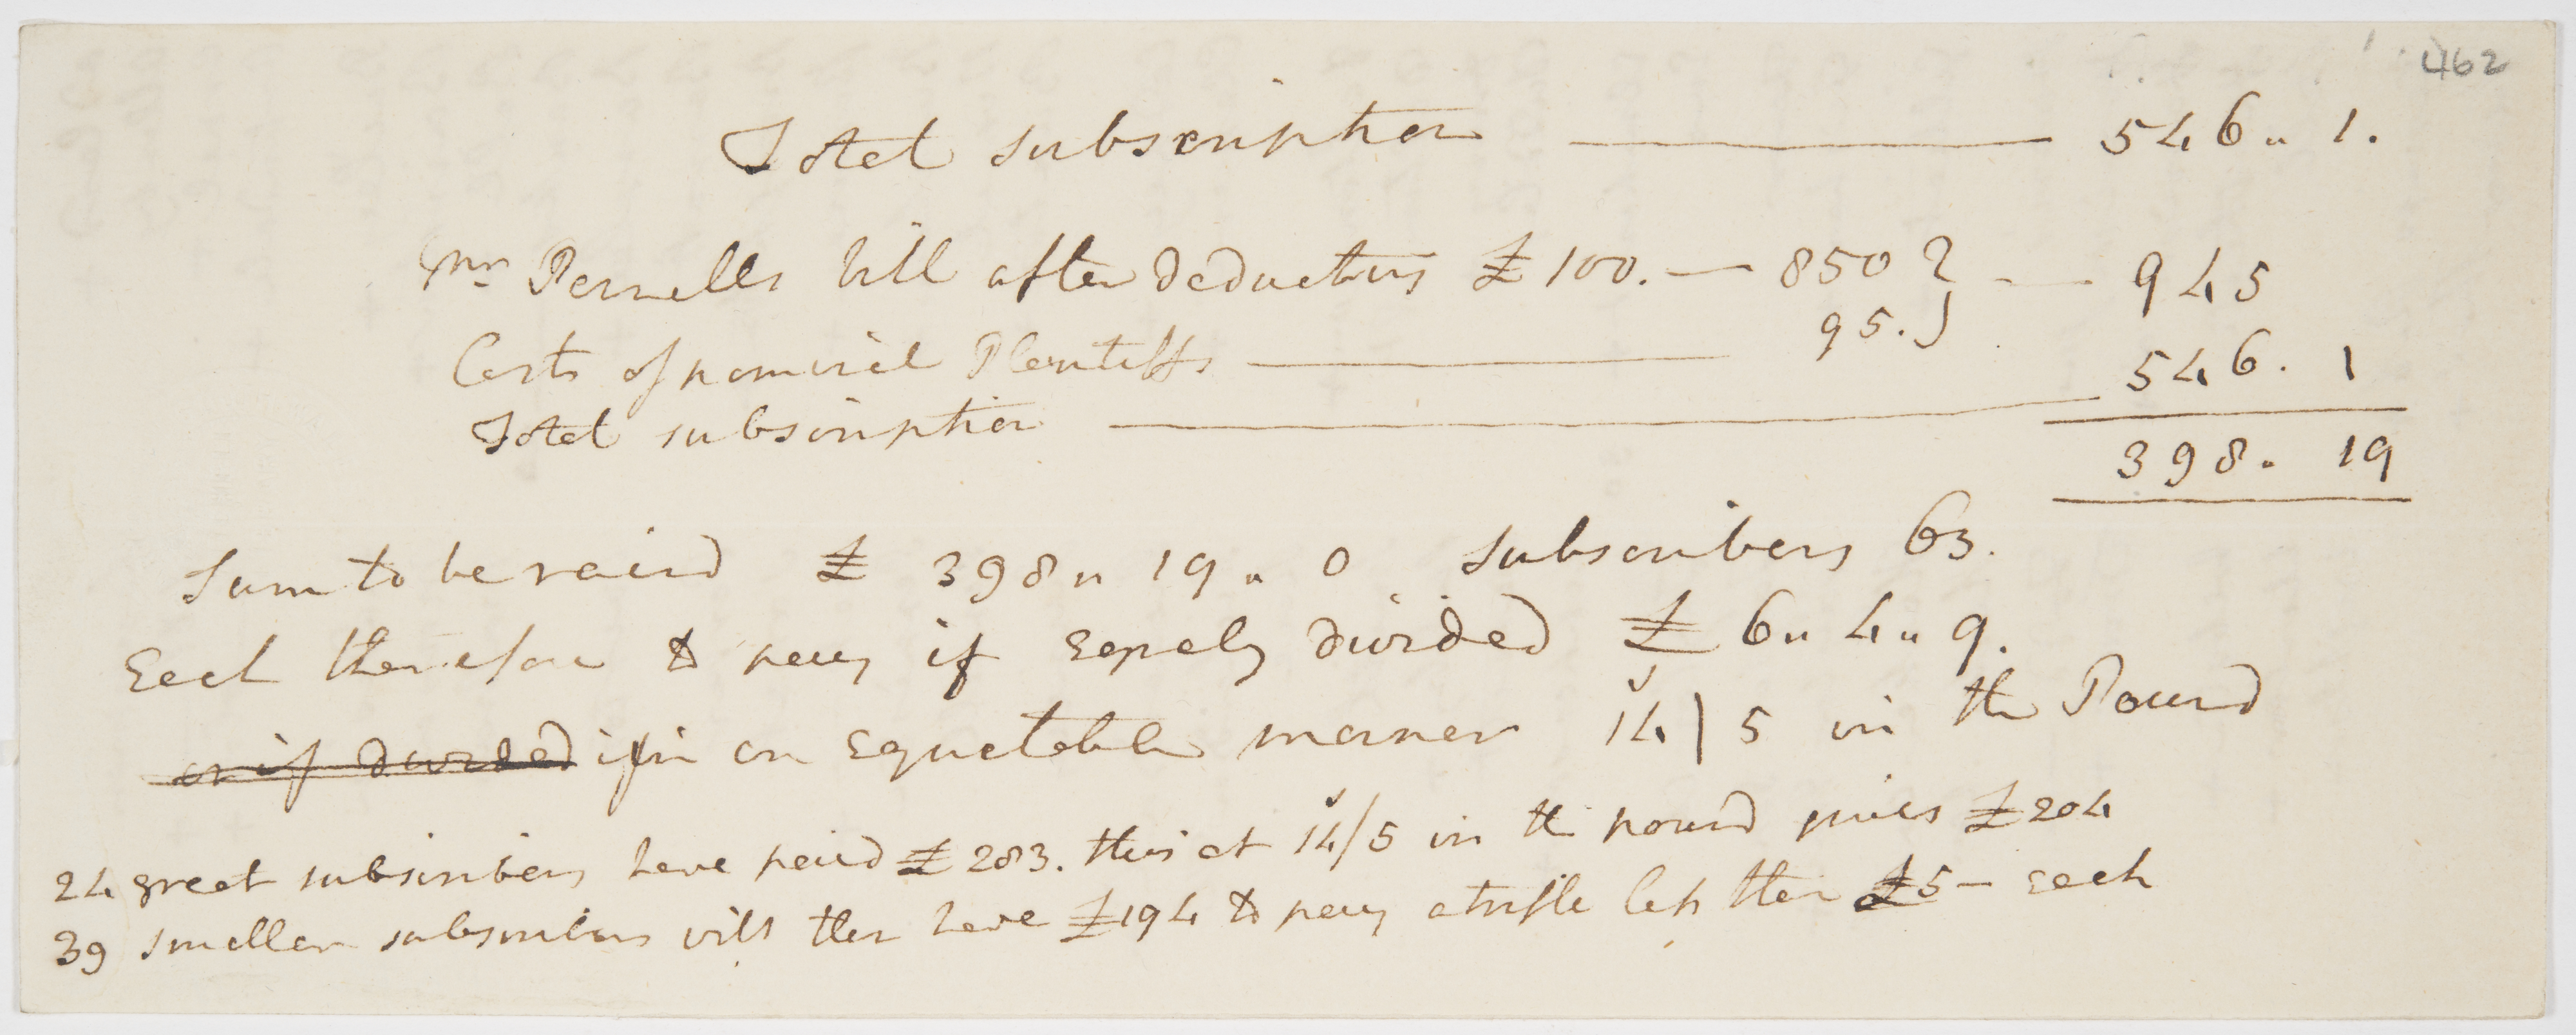 462
Total subscription ——— 546 " 1.
Mr. Pernells bill after deducting £100. — 850 } — 945
Costs of nominal Plantiffs ——— 95. }
Total subscription ——— 546. 1
398. 19
Sum to be raisd £ 398 " 19 " 0 Subscribers 63.
Each therefore to pay if eqaely divided £ 6 " 4 " 9.
or if divided if in an equetable manner 14/5 in the Pound
24 great subscribers have paid £283. this at 14/5 in the pound gives £204
39 smaller subscribers will then have £194 to pay a trifle less then £5 - each